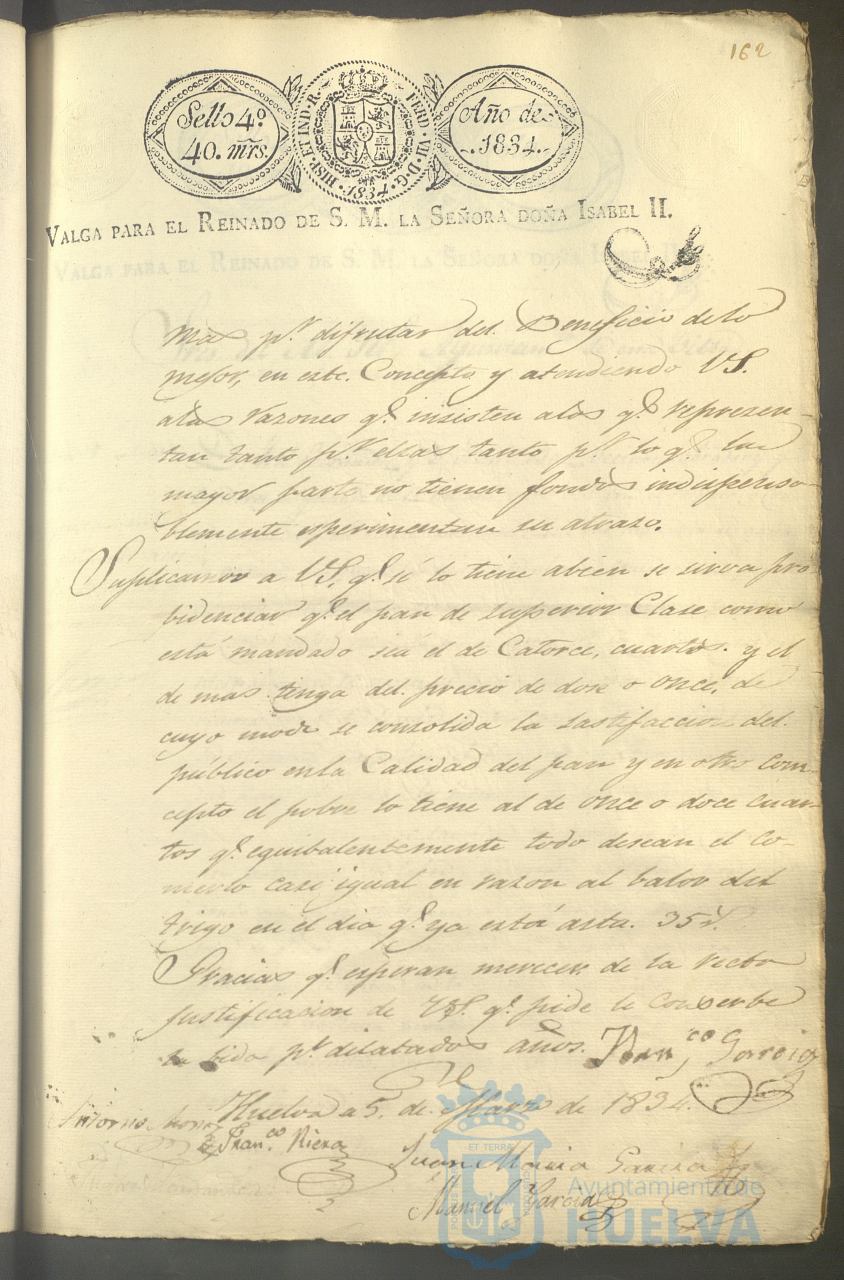 162
Sello 4º
40. mrs.
HISP. ET IND. R. FERD. VII. D. G.
1834.
Año de
1834.
VALGA PARA EL REINADO DE S. M. LA SEÑORA DOÑA ISABEL II.
mas pr. disfrutar del Beneficio de lo
mejor, en este Concepto y atendiendo VS.
a las razones qe. insisten a los qe. represen-
tan tanto pr. ellas tanto pr. lo qe. la
mayor parte no tienen fondos indispensa-
blemente esperimentan su atraso.
Suplicamos a VS. qe. si lo tiene abien se sirva pro
bidenciar qe. el pan de superior Clase como
está mandado sea el de Catorce, cuartos. y el
de mas tenga del precio de dose o once, de
cuyo modo se consolida la sastifaccion del
público en la Calidad del pan y en otro Con-
cepto el pobre lo tiene al de once o doce cuar-
tos qe. equibalentemente todo desean el Co-
mierlo casi igual en razon al balor del
trigo en el dia qe. ya está asta. 35 r.
Gracias qe. esperan merecer de la recta
justificacion de VS. qe. pide le Conserbe
la bida pr. dilatados años.
Franco. Garcia
Huelva a 5. de Marzo de 1834.
Antonio
Franco. Riera
Juan Maria Garcia
Manuel Garcia
ET TERRÆ
Ayuntamiento de
HUELVA